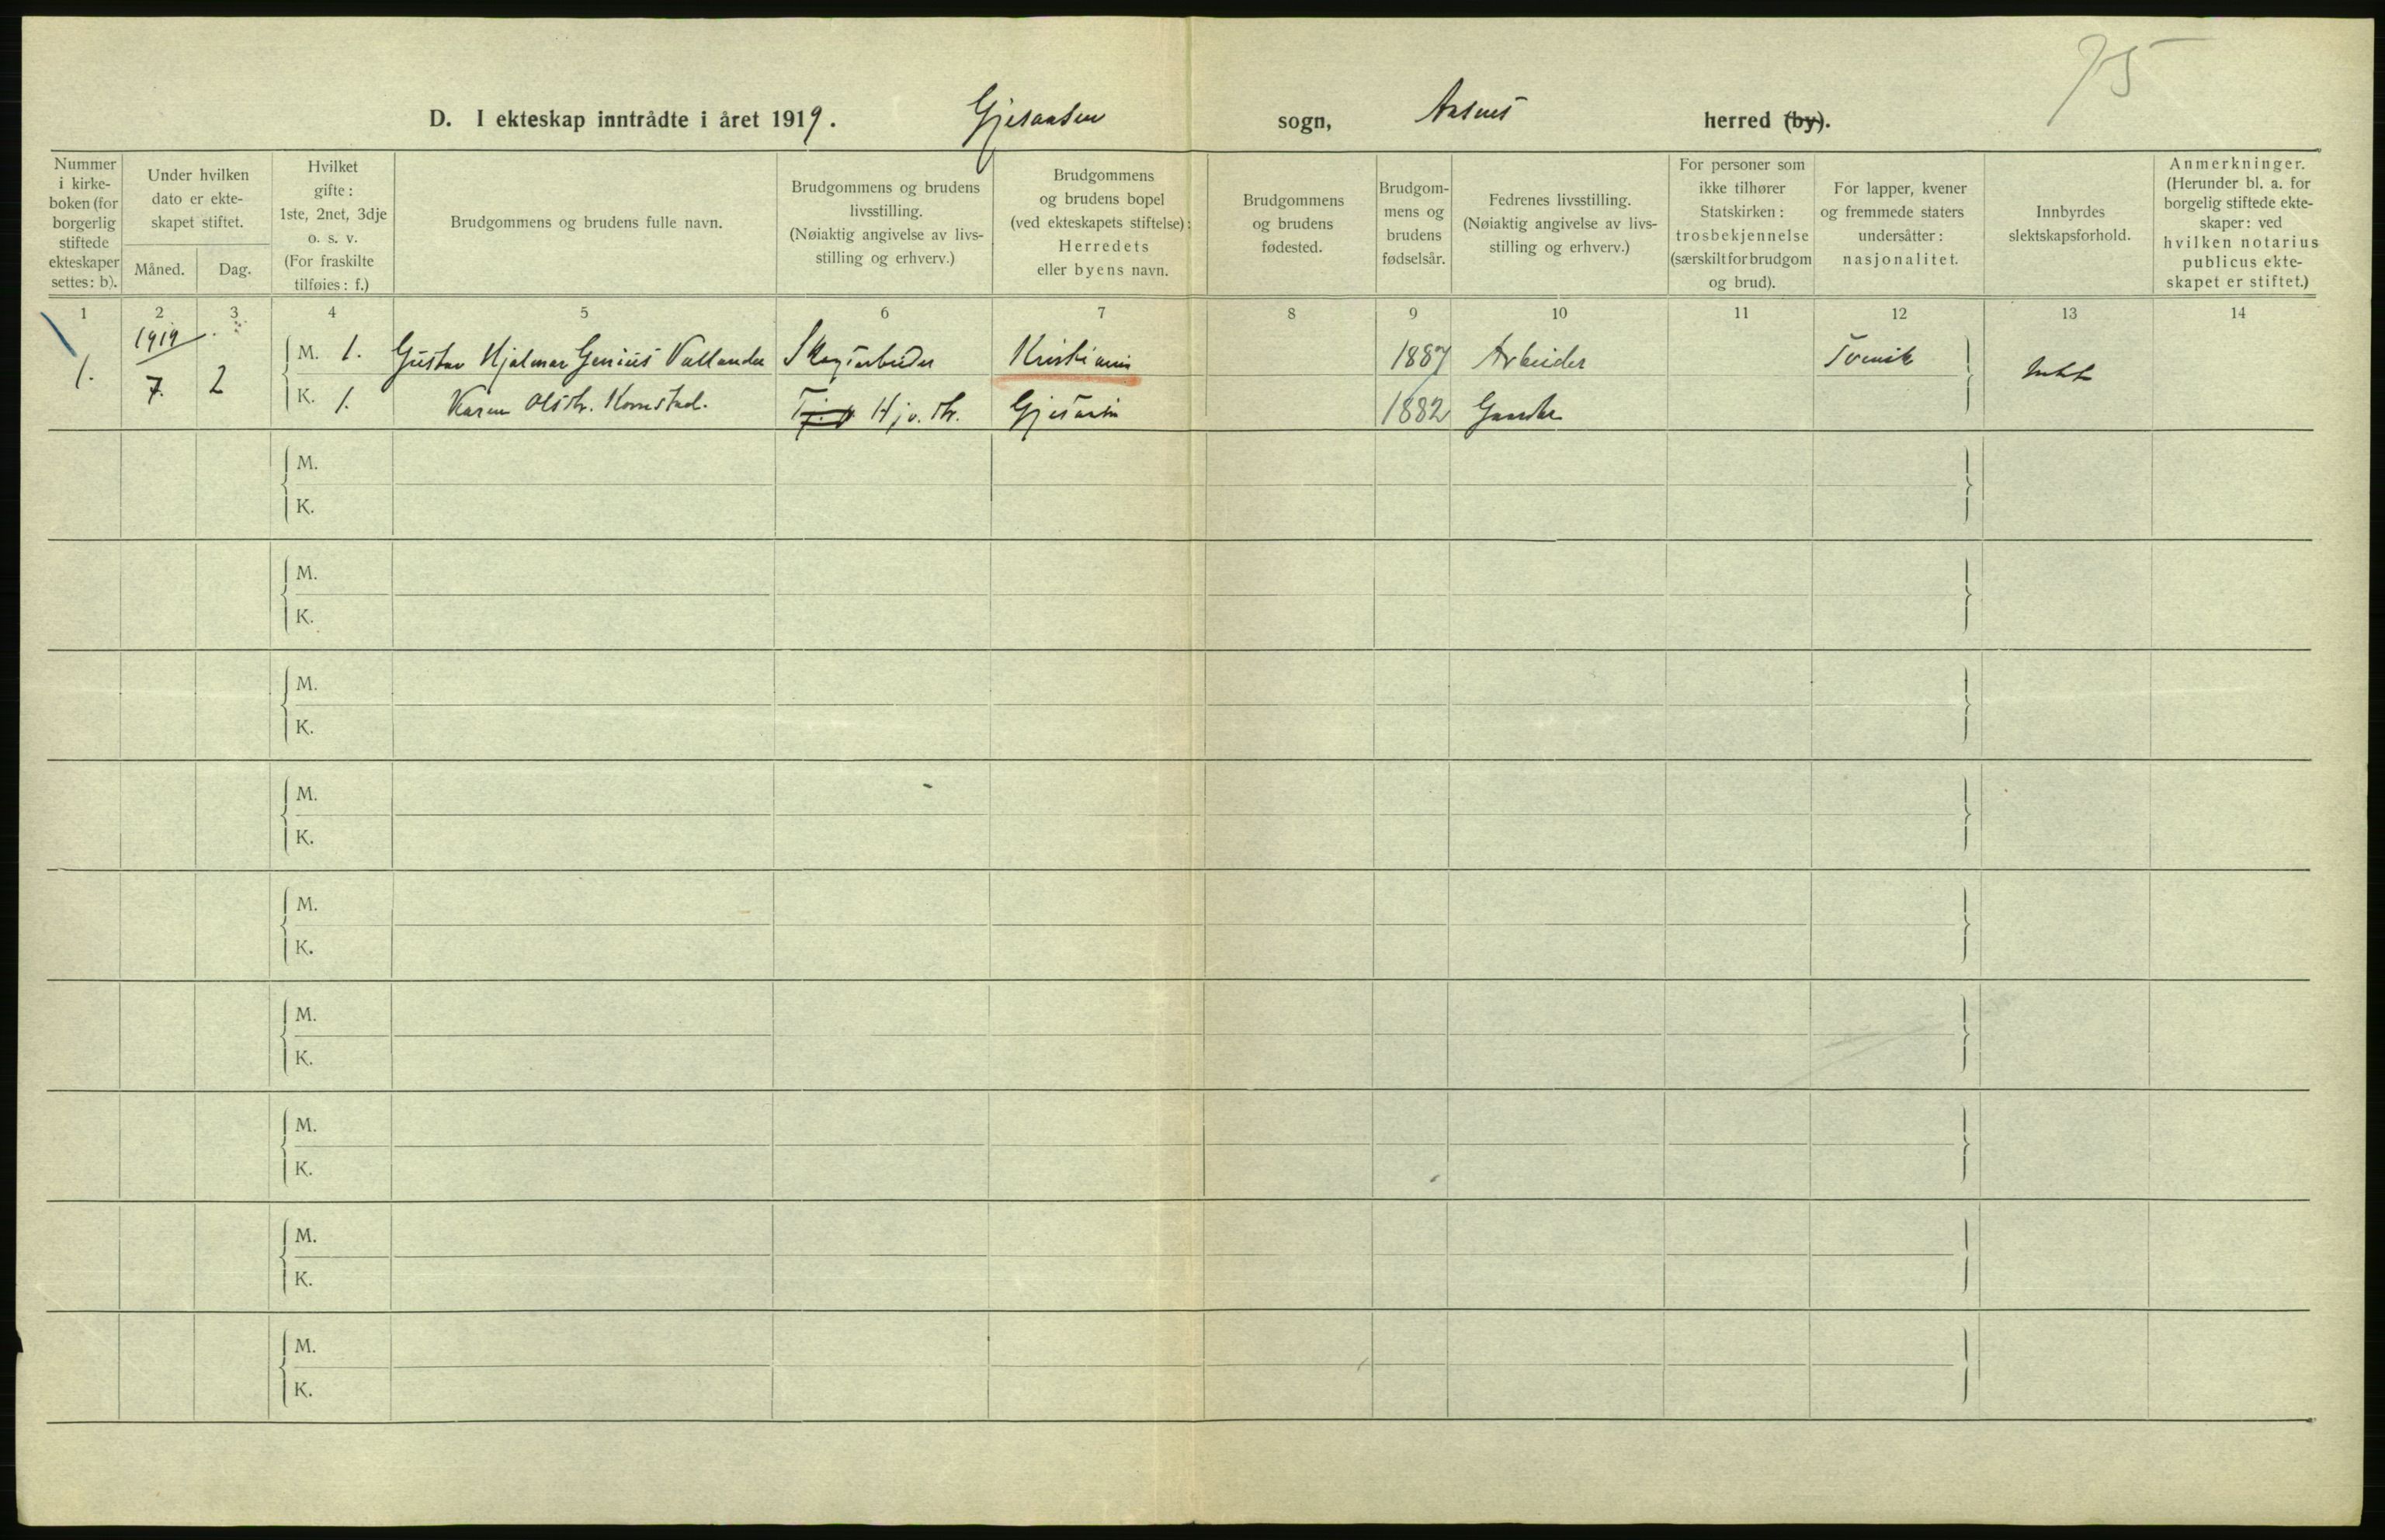 75
D. I ekteskap inntrådte i året 1919. Gjesaasen sogn, Aasnes herred (by).
Nummer i kirke-boken (for borgerlig stiftede ekteskaper settes: b).
Under hvilken dato er ekte-skapet stiftet.
Måned. Dag.
Hvilket gifte: 1ste, 2net, 3dje o. s. v. (For fraskilte tilføies: f.)
Brudgommens og brudens fulle navn.
Brudgommens og brudens livsstilling. (Nøiaktig angivelse av livs-stilling og erhverv.)
Brudgommens og brudens bopel (ved ekteskapets stiftelse): Herredets eller byens navn.
Brudgommens og brudens fødested.
Brudgom-mens og brudens fødselsår.
Fedrenes livsstilling. (Nøiaktig angivelse av livs-stilling og erhverv.)
For personer som ikke tilhører Statskirken: trosbekjennelse (særskilt for brudgom og brud).
For lapper, kvener og fremmede staters undersåtter: nasjonalitet.
Innbyrdes slektskapsforhold.
Anmerkninger. (Herunder bl. a. for borgelig stiftede ekte-skaper: ved hvilken notarius publicus ekte-skapet er stiftet.)
1 2 3 4 5 6 7 8 9 10 11 12 13 14
1919
1. 7. 2 M. 1. Gustav Hjalmar Genius Vallander Skogsarbeider Kristiania 1887 Arbeider Svensk
K. 1. Karen Olsdtr. Kornstad. Hj. v. dtr. Gjesaasen 1882 Gaardbr
M.
K.
M.
K.
M.
K.
M.
K.
M.
K.
M.
K.
M.
K.
M.
K.
M.
K.